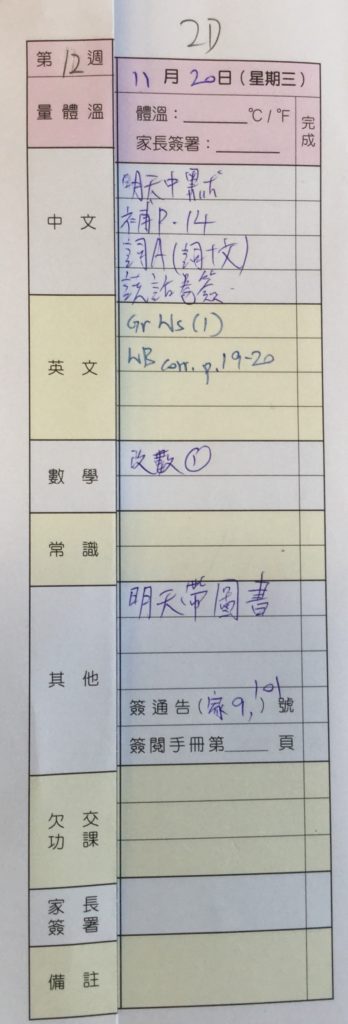 2D
第12週
11月20日(星期三)
量體溫
體溫：______°C/°F
家長簽署：______
完成
中文
明天中默
補P.14
詞A(詞+文)
說話卷簽
英文
Gr Ws (1)
WB corr. p.19-20
數學
改數①
常識
其他
明天帶圖書
簽通告(家9,101)號
簽閱手冊第____頁
欠交功課
家長簽署
備註